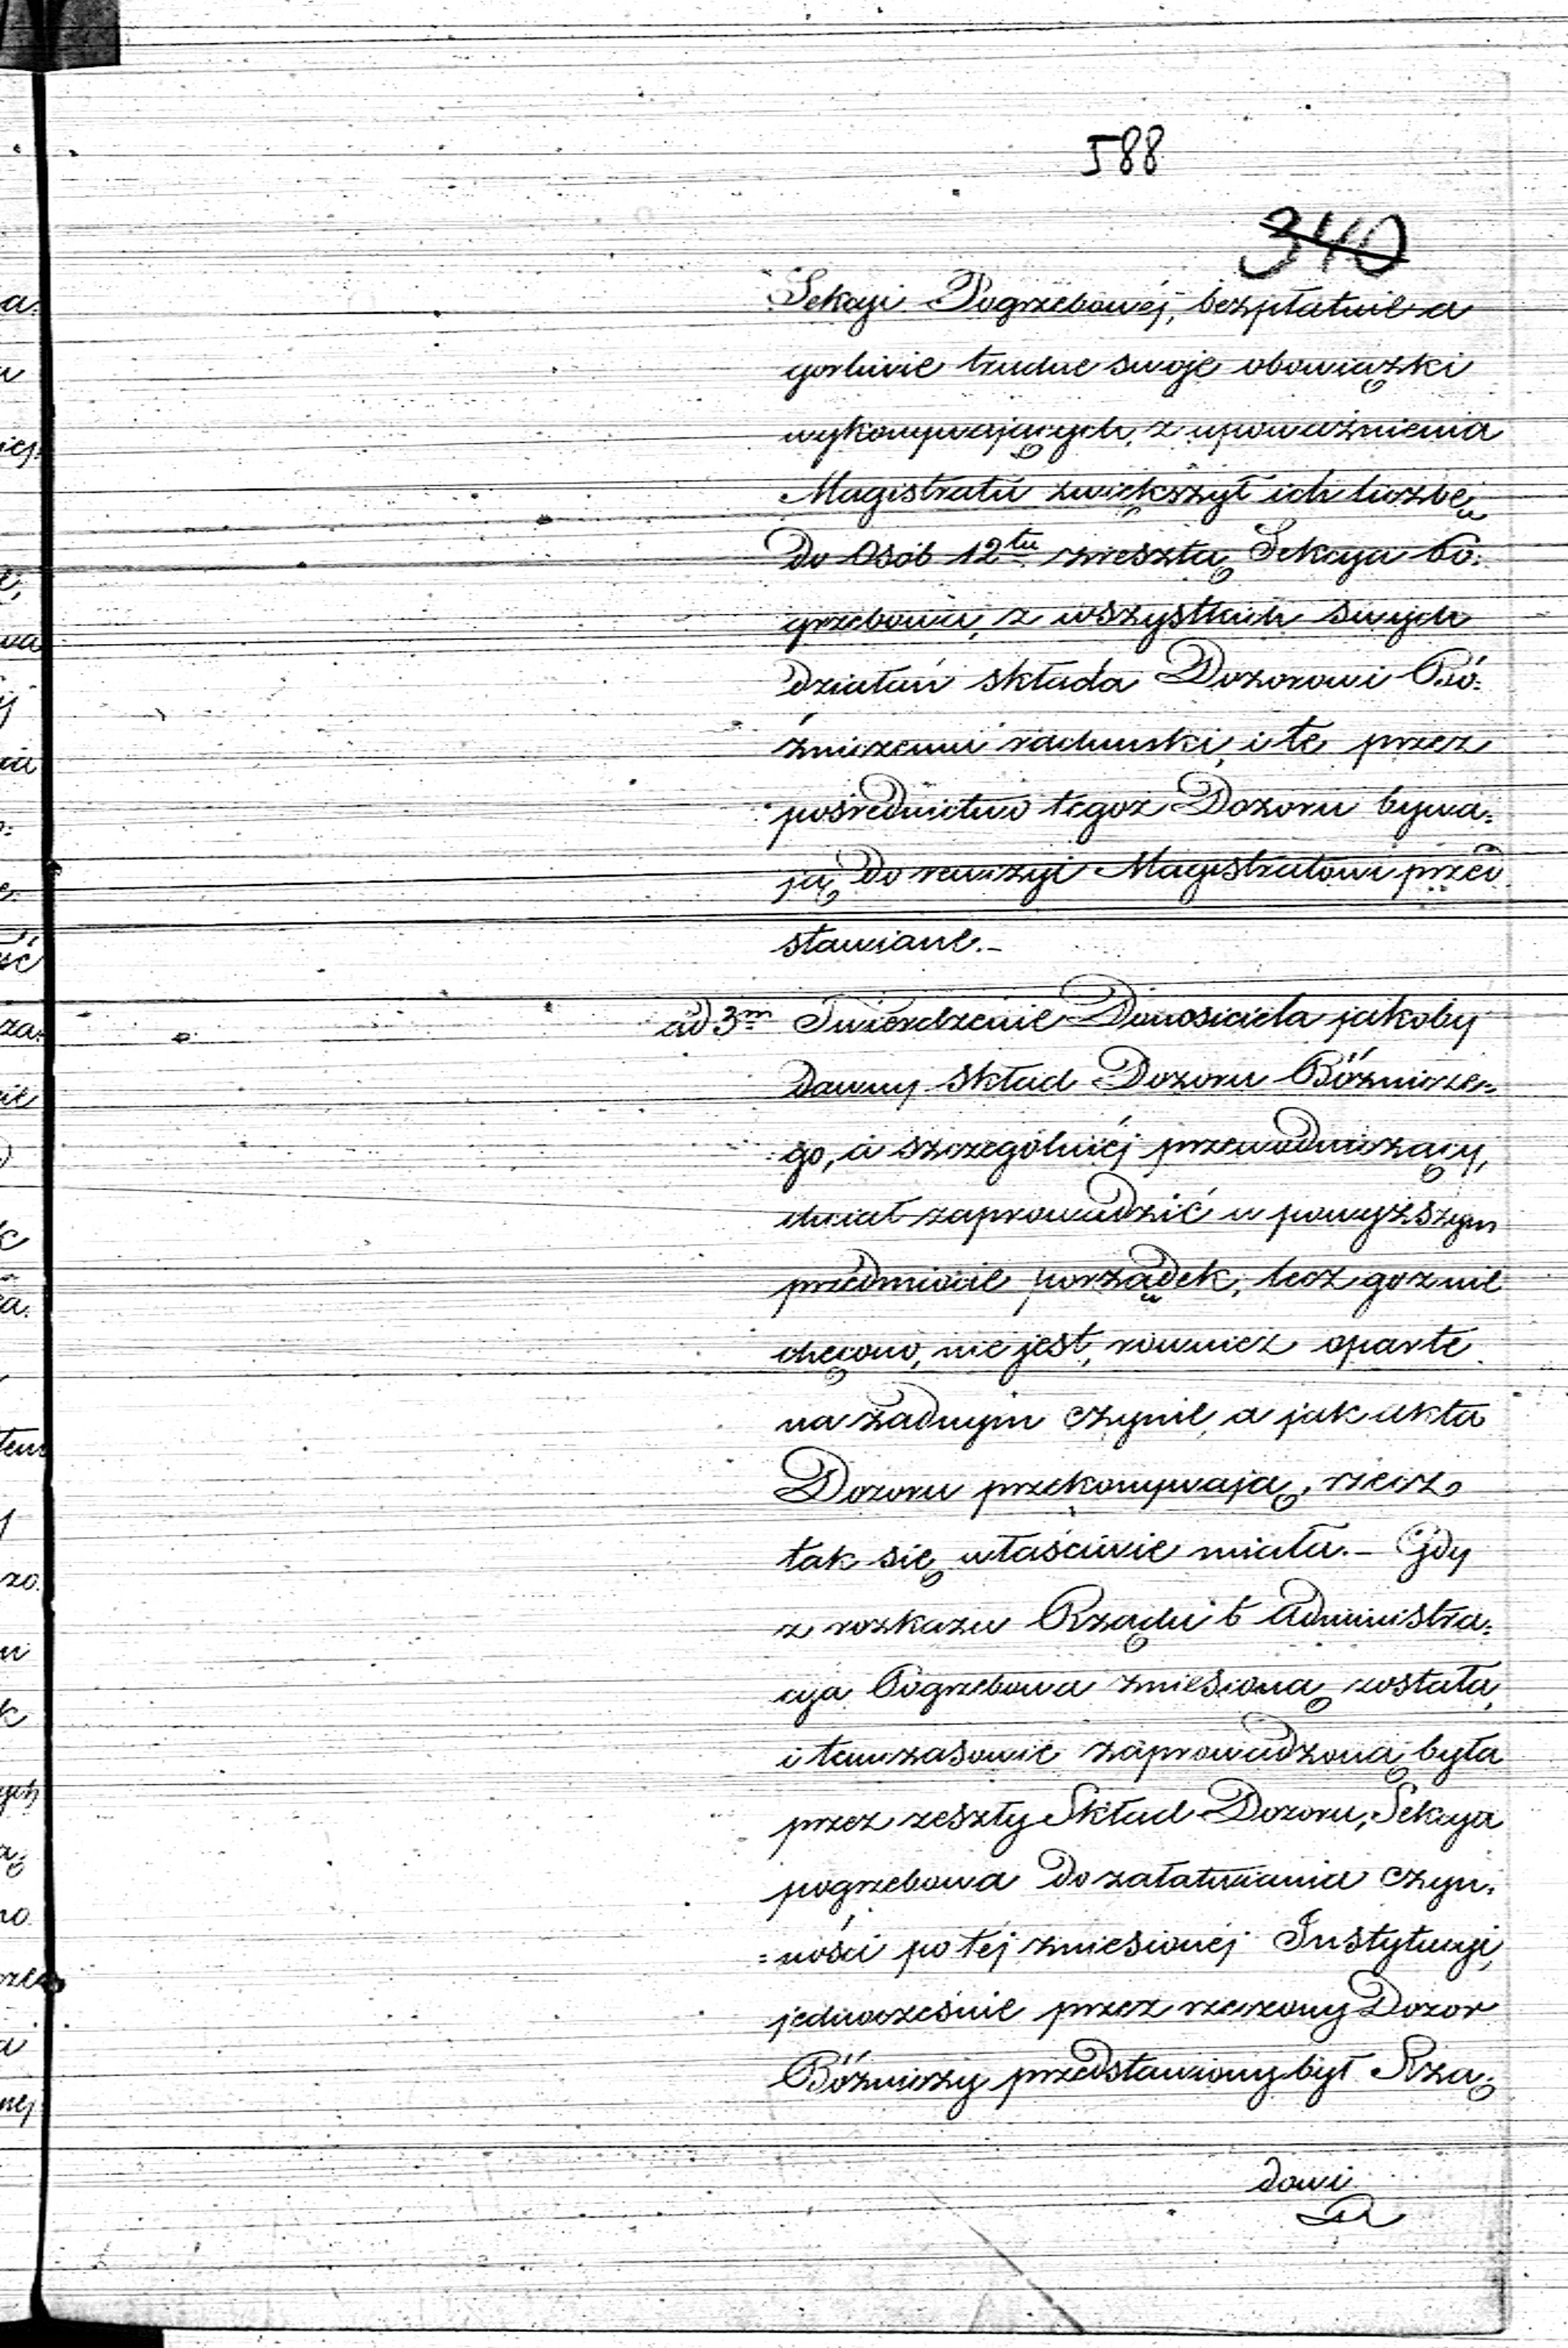 588
340
Sekcyi Pogrzebowéj, bezpłatnie a
gorliwie trudne swoje obowiązki
wykonywających, z upoważnienia
Magistratu zwiększył ich liczbę
do Osób 12tu zresztą Sekcya Po-
grzebowa, z wszystkich swych
działań składa Dozorowi Bó-
źniczemu rachunki, i te przez
pośrednictwo tegoż Dozoru bywa-
ją do rewizyi Magistratowi przed
stawiane.-
ad 3m Twierdzenie Donosiciela jakoby
dawny skład Dozoru Bóźnicze-
go, a szczególniéj przewodniczący,
chciał zaprowadzić w powyższym
przedmiocie porządek, lecz go znie
chęcono, nie jest, również oparte
na żadnym czynie, a jak akta
Dozoru przekonywają, rzecz
tak się właściwie miała.- Gdy
z rozkazu Rządu b Administra-
cya Pogrzebowa zniesioną została,
i tymczasowie zaprowadzoną była
przez zeszły Skład Dozoru, Sekcya
pogrzebowa do załatwiania czyn-
=ności po téj zniesionéj Instytucyi,
jednocześnie przez rzeczony Dozor
Bóźniczy przedstawiony był Rzą-
dowi